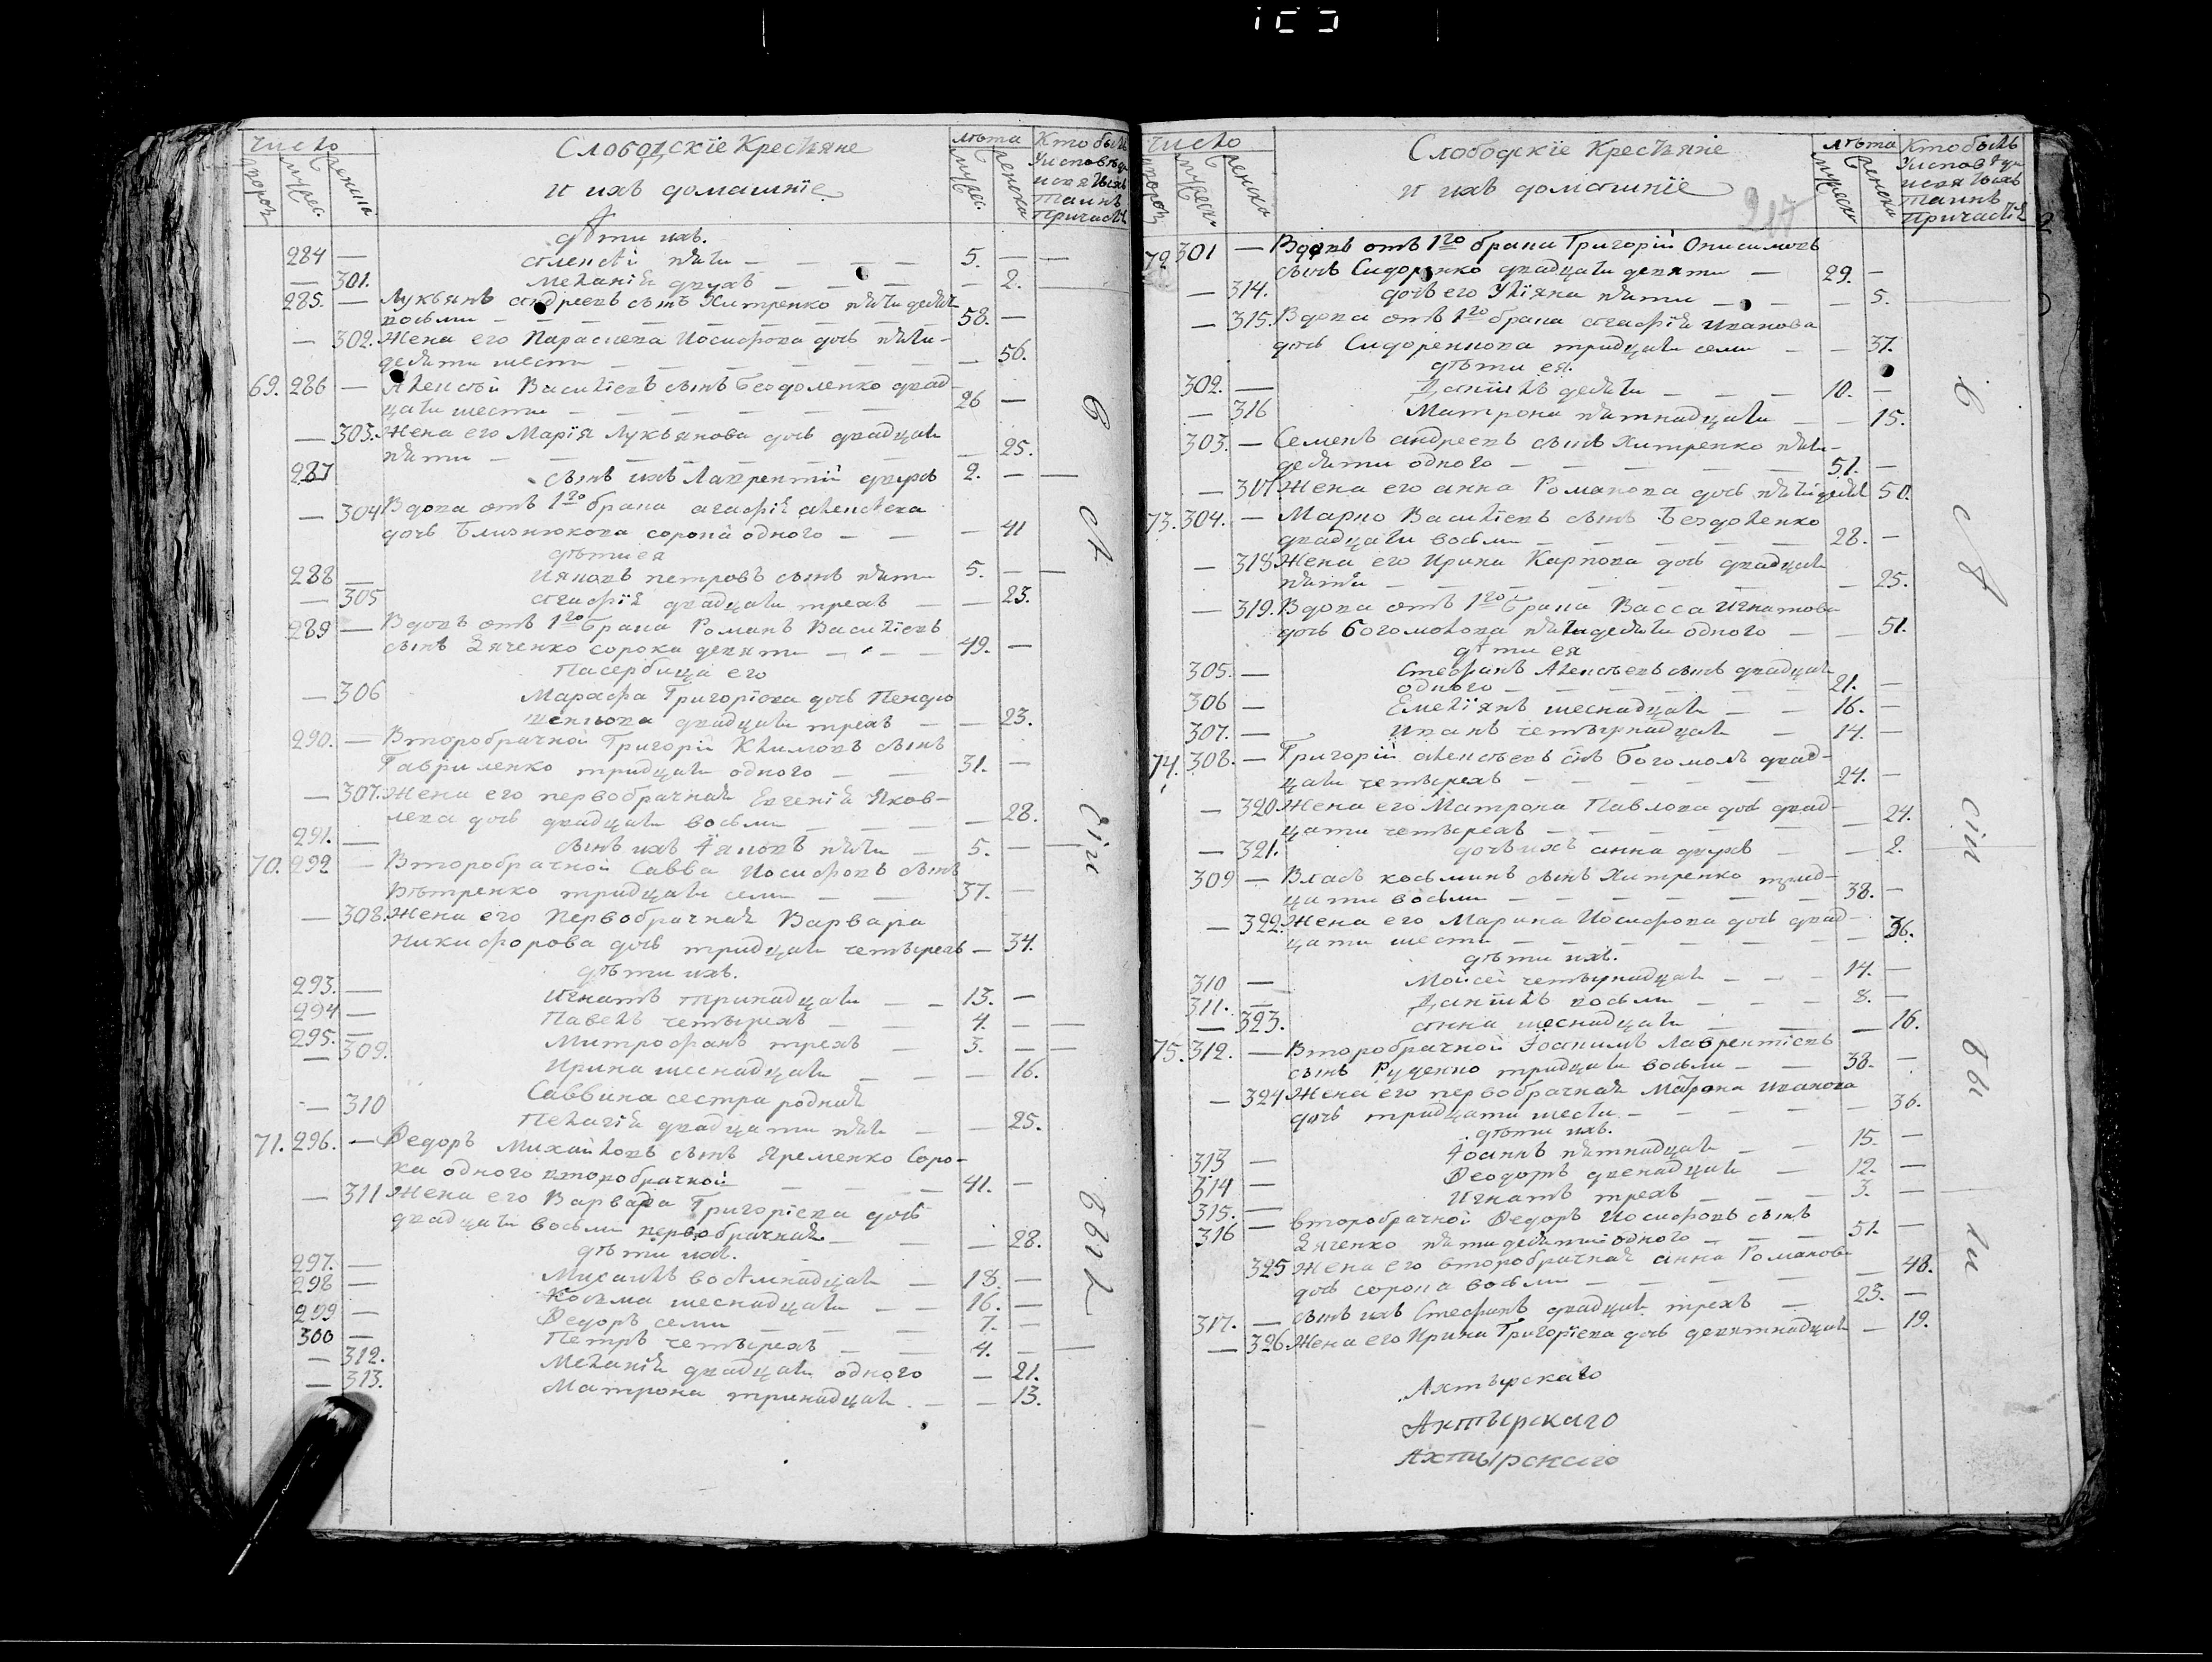 Число
Слободскіе Крестьяне
и ихъ домашніе
лѣта
Кто былъ
Уисповѣди
исвятыхъ
таинъ
Причастія
дворов
мужес.
женска
мужес.
женска
дѣти ихъ.
284 — алексѣй пяти — 5. —
— 301. Меланія двухъ — 2.
285. — Лукьянъ андреевъ сынъ Хитренко пятидесят
восьми — 58. —
— 302. Жена его Параскева Иосифова дочь пяти-
десяти шести — 56.
69. 286 — Алексѣй Василіевъ сынъ Бездоленко двад-
цати шести — 26 —
— 303. Жена его Марія Лукьянова дочь двадцати
пяти — 25.
287 сынъ ихъ Лаврентій двухъ 2. —
— 304 Вдова отъ 1го брака агафія алексѣева
дочь Близнюкова сорока одного — 41
дѣти ея
288 — Иаковъ петровъ сынъ пяти 5. —
— 305 агафія двадцати трехъ — 23.
289 — Вдовъ отъ 1го брака Романъ Василіевъ
сынъ Дяченко сорока девяти — 49. —
Пасербица его
— 306 Марфа Григоріева дочь
двадцати трехъ — 23.
290. — Второбрачной Григорій Климовъ сынъ
Гавриленко тридцати одного — 31. —
— 307. Жена его первобрачная Евгенія Яков-
лева дочь двадцати восьми — 28.
291. — сынъ ихъ Іаковъ пяти — 5. —
70. 292 — Второбрачной Савва Иосифовъ сынъ
Вѣтренко тридцати семи — 37. —
— 308. Жена его Первобрачная Варвара
Никифорова дочь тридцати четырехъ — 34.
дѣти ихъ.
293. — Игнатъ тринадцати — 13. —
294 — Павелъ четырехъ — 4. —
295. — Митрофанъ трехъ — 3. —
— 309. Ирина шеснадцати — 16.
Саввина сестра родная
— 310 Пелагія двадцати пяти — 25.
71. 296. — Ѳедоръ Михайловъ сынъ Яременко Соро-
ка одного второбрачной — 41. —
— 311 Жена его Варвара Григоріева дочь
двадцати восьми первобрачная — 28.
дѣти ихъ.
297. — Михаилъ восѣмнадцати — 18. —
298 — Косьма шеснадцати — 16. —
299 — Ѳедоръ семи — 7. —
300 — Петръ четырехъ — 4. —
— 312. Меланія двадцати одного — 21.
— 313. Матрона тринадцати — 13.
Число
Слободскіе Крестьяне
и ихъ домашніе
217
лѣта
Кто былъ
Уисповѣди
исвятыхъ
таинъ
Причастія
дворов
мужеск
женска
мужеска
женска
72. 301 — Вдовъ отъ 1го брака Григорій Онисимовъ
сынъ Сидоренко двадцати девяти — 29. —
— 314. дочь его Уліяна пяти — 5.
— 315. Вдова отъ 1го брака агафія иванова
дочь Сидоренкова тридцати семи — 37.
дѣти ея.
302. — Даніилъ десяти — 10. —
— 316 Матрона пятнадцати — 15.
303. — Семенъ андреевъ сынъ Хитренко пяти-
десяти одного — 51. —
— 317 Жена его анна Романова дочь пятидесят 50.
73. 304. — Марко Василіевъ сынъ Бездоленко
двадцати восьми — 28. —
— 318 Жена его Ирина Карпова дочь двадцати
пяти — 25.
— 319. Вдова отъ 1го брака Васса Игнатова
дочь Богомолова пятидесяти одного — 51.
дѣти ея
305. — Стефанъ Алексѣевъ сынъ двадцати
одного — 21. —
306 — Емеліянъ шеснадцати — 16. —
307. — иванъ четырнадцати — 14. —
74. 308. — Григорій алексѣевъ снъ Богомолъ двад-
цати четырехъ — 24. —
— 320 Жена его Матрона Павлова дочь двад-
цати четырехъ — 24.
— 321. дочь ихъ анна двухъ — 2.
309 — Власъ косьминъ сынъ Хитренко трид-
цати восьми — 38. —
— 322. Жена его Марина Иосифова дочь двад-
цати шести — 36.
дѣти ихъ.
310 — Мойсей четырнадцати — 14. —
311. — Даніилъ восьми — 8. —
— 323. анна шеснадцати — 16.
75. 312. — Второбрачной Іоакимъ Лаврентіевъ
сынъ Руденко тридцати восьми — 38. —
— 324 Жена его первобрачная Матрона иванова
дочь тридцати шести — 36.
дѣти ихъ.
313 — Іоаннъ пятнадцати — 15. —
314 — Ѳеодоръ двенадцати — 12. —
315. — Игнатъ трехъ — 3. —
316 — второбрачной Ѳедоръ Иосифовъ сынъ
Дяченко пятидесяти одного — 51. —
325 Жена его второбрачная анна Романова
дочь сорока восьми — 48.
317. — сынъ ихъ Стефанъ двадцати трехъ — 23. —
— 326 Жена его Ирина Григоріева дочь девятнадцати — 19.
Ахтырскаго
Ахтырскаго
Ахтырскаго